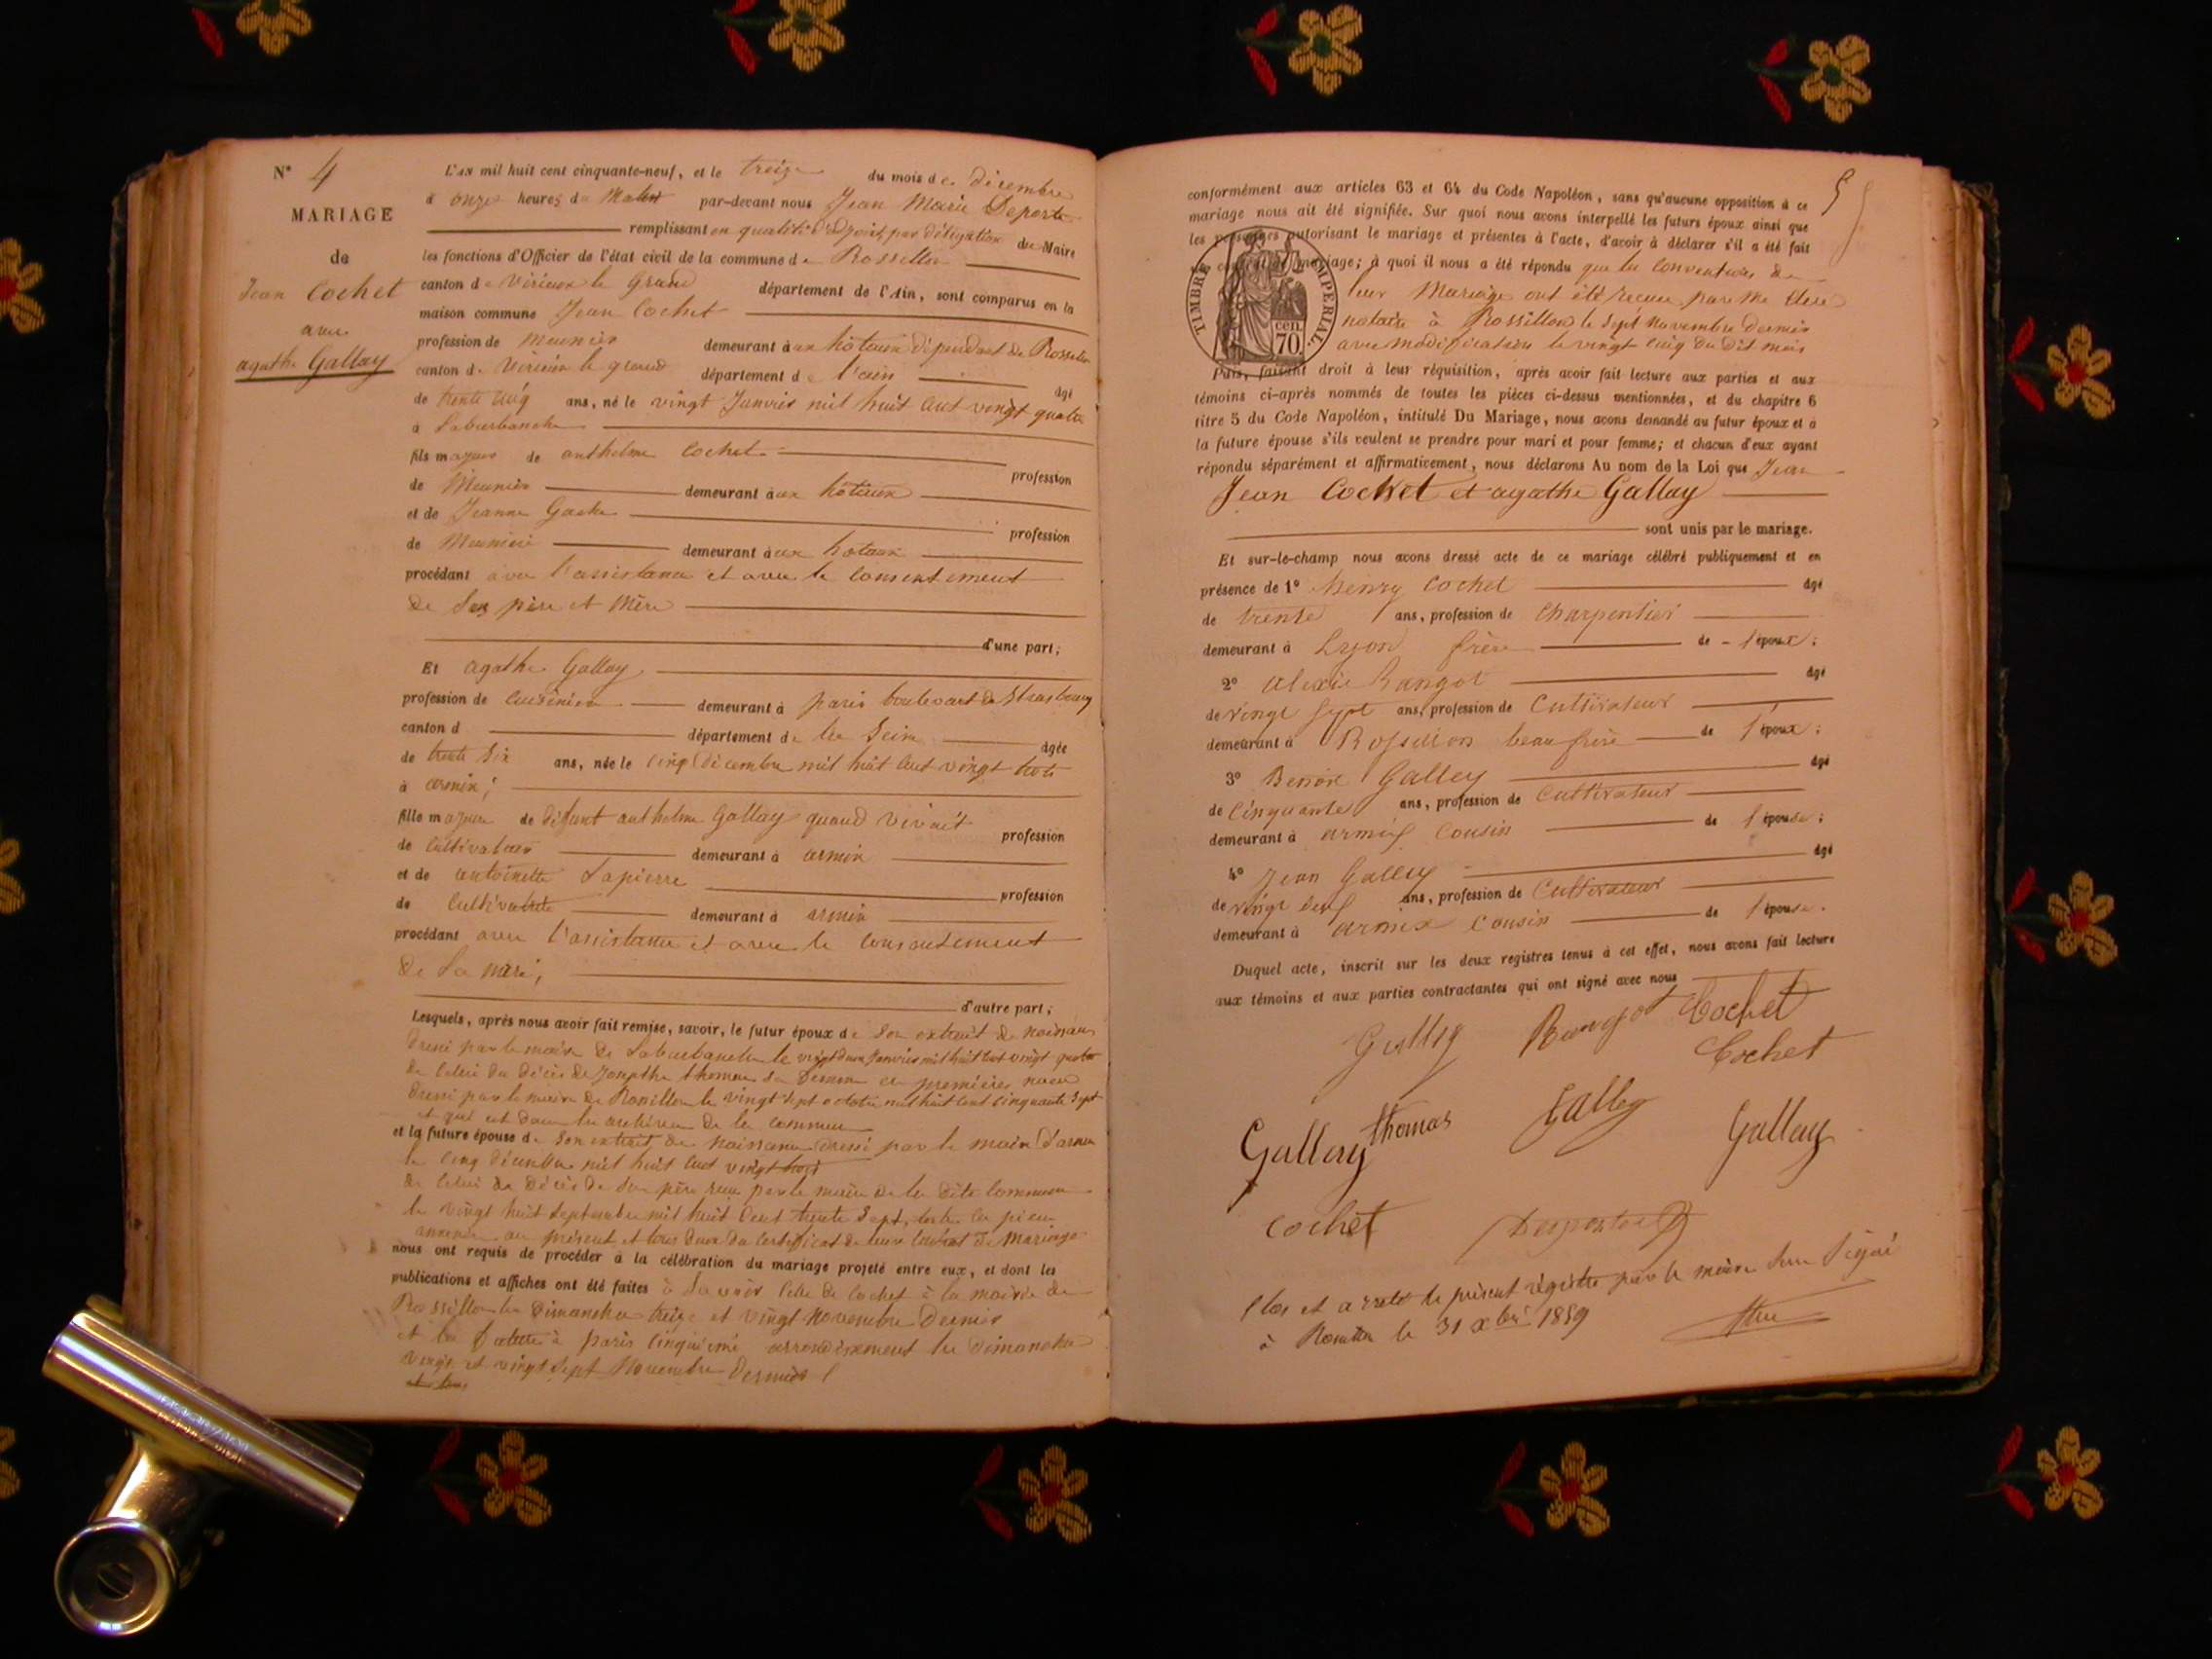 N° 4
MARIAGE
de
Jean Cochet
avec
agathe Gallay
L'an mil huit cent cinquante-neuf, et le treize du mois de décembre
à onze heures du Matin par-devant nous Jean Marie Deporte
remplissant en qualité d'adjoint, par délégation du Maire
les fonctions d'Officier de l'état civil de la commune de Rossillon
canton de Virieux le Grand département de l'Ain, sont comparus en la
maison commune Jean Cochet
profession de Meunier demeurant aux hôteaux dépendant de Rossillon
canton de Virieux le grand département de l'ain âgé
de trente cinq ans, né le vingt Janvier mil huit cent vingt quatre
à Laburbanche
fils majeur de anthelme Cochet profession
de Meunier demeurant aux hôteaux
et de Jeanne Gache profession
de Meunière demeurant aux hôteaux
procédant avec l'assistance et avec le consentement
de ses père et mère
d'une part;
Et agathe Gallay
profession de cuisinière demeurant à paris boulevart de Strasbourg
canton d département de la Seine âgée
de trente six ans, née le cinq décembre mil huit cent vingt trois
à armix;
fille majeure de défunt anthelme Gallay quand vivait profession
de cultivateur demeurant à armix
et de antoinette Lapierre profession
de cultivatrice demeurant à armix
procédant avec l'assistance et avec le consentement
de sa mère;
d'autre part;
Lesquels, après nous avoir fait remise, savoir, le futur époux de son extrait de naissance
dressé par le maire de Laburbanche le vingt deux Janvier mil huit cent vingt quatre
de celui du décès de Josephte thomas sa femme en premières noces
dressé par le maire de Rossillon le vingt sept octobre mil huit cent cinquante sept
et qui est dans les archives de la commune
et la future épouse de son extrait de naissance dressé par le maire d'armix
le cinq décembre mil huit cent vingt trois
de celui de décès de son père reçu par le maire de la dite commune
le vingt huit septembre mil huit cent trente sept, toutes les pièces
annexées au présent et tous deux du certificat de leur contrat de mariage
nous ont requis de procéder à la célébration du mariage projeté entre eux, et dont les
publications et affiches ont été faites à savoir celle de Cochet à la mairie de
Rossillon les dimanches treize et vingt novembre dernier
et la future à paris cinquième arrondissement les dimanches
vingt et vingt sept Novembre dernier
5
conformément aux articles 63 et 64 du Code Napoléon, sans qu'aucune opposition à ce
mariage nous ait été signifiée. Sur quoi nous avons interpellé les futurs époux ainsi que
les personnes autorisant le mariage et présentes à l'acte, d'avoir à déclarer s'il a été fait
un contrat de mariage; à quoi il nous a été répondu que les conventions de
leur Mariage ont été reçues par Me
notaire à Rossillon le sept novembre dernier
avec modification le vingt cinq du dit mois
TIMBRE IMPERIAL.
cen.
70.
Puis, faisant droit à leur réquisition, après avoir fait lecture aux parties et aux
témoins ci-après nommés de toutes les pièces ci-dessus mentionnées, et du chapitre 6
titre 5 du Code Napoléon, intitulé Du Mariage, nous avons demandé au futur époux et à
la future épouse s'ils veulent se prendre pour mari et pour femme; et chacun d'eux ayant
répondu séparément et affirmativement, nous déclarons Au nom de la Loi que Jean
Jean Cochet et agathe Gallay
sont unis par le mariage.
Et sur-le-champ nous avons dressé acte de ce mariage célébré publiquement et en
présence de 1° henry Cochet âgé
de trente ans, profession de Charpentier
demeurant à Lyon frère de l'époux;
2° alexie Rangot âgé
de vingt sept ans, profession de Cultivateur
demeurant à Rossillon beau frère de l'époux;
3° Benoix Galley âgé
de Cinquante ans, profession de Cultivateur
demeurant à armix Cousin de l'épouse;
4° Jean Galley âgé
de vingt neuf ans, profession de Cultivateur
demeurant à armix Cousin de l'épouse.
Duquel acte, inscrit sur les deux registres tenus à cet effet, nous avons fait lecture
aux témoins et aux parties contractantes qui ont signé avec nous
Galley Rangot Cochet
Cochet
Gallay thomas Galley Gallay
Cochet Deporte
Clos et arrêté le présent régistre par le maire Sous Signé
à Rossillon le 31 xbre 1859